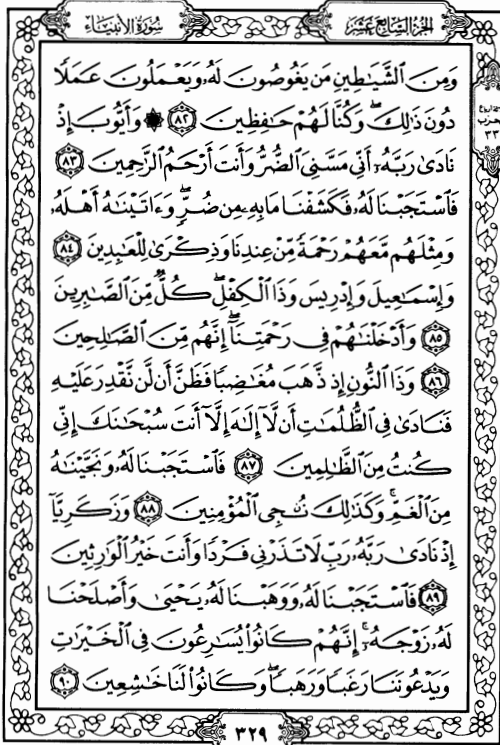 سُورَةُ الأَنبِيَاءِ
الجُزءُ السَّابِعَ عَشَرَ
وَمِنَ الشَّيَاطِينِ مَن يَغُوصُونَ لَهُ وَيَعْمَلُونَ عَمَلًا
دُونَ ذَٰلِكَ ۖ وَكُنَّا لَهُمْ حَافِظِينَ ٨٢ ۞ وَأَيُّوبَ إِذْ
نَادَىٰ رَبَّهُ أَنِّي مَسَّنِيَ الضُّرُّ وَأَنتَ أَرْحَمُ الرَّاحِمِينَ ٨٣
فَاسْتَجَبْنَا لَهُ فَكَشَفْنَا مَا بِهِ مِن ضُرٍّ ۖ وَءَاتَيْنَاهُ أَهْلَهُ
وَمِثْلَهُم مَّعَهُمْ رَحْمَةً مِّنْ عِندِنَا وَذِكْرَىٰ لِلْعَابِدِينَ ٨٤
وَإِسْمَاعِيلَ وَإِدْرِيسَ وَذَا الْكِفْلِ ۖ كُلٌّ مِّنَ الصَّابِرِينَ
٨٥ وَأَدْخَلْنَاهُمْ فِي رَحْمَتِنَا ۖ إِنَّهُم مِّنَ الصَّالِحِينَ
٨٦ وَذَا النُّونِ إِذ ذَّهَبَ مُغَاضِبًا فَظَنَّ أَن لَّن نَّقْدِرَ عَلَيْهِ
فَنَادَىٰ فِي الظُّلُمَاتِ أَن لَّا إِلَٰهَ إِلَّا أَنتَ سُبْحَانَكَ إِنِّي
كُنتُ مِنَ الظَّالِمِينَ ٨٧ فَاسْتَجَبْنَا لَهُ وَنَجَّيْنَاهُ
مِنَ الْغَمِّ ۚ وَكَذَٰلِكَ نُنجِي الْمُؤْمِنِينَ ٨٨ وَزَكَرِيَّا
إِذْ نَادَىٰ رَبَّهُ رَبِّ لَا تَذَرْنِي فَرْدًا وَأَنتَ خَيْرُ الْوَارِثِينَ
٨٩ فَاسْتَجَبْنَا لَهُ وَوَهَبْنَا لَهُ يَحْيَىٰ وَأَصْلَحْنَا
لَهُ زَوْجَهُ ۚ إِنَّهُمْ كَانُوا يُسَارِعُونَ فِي الْخَيْرَاتِ
وَيَدْعُونَنَا رَغَبًا وَرَهَبًا ۖ وَكَانُوا لَنَا خَاشِعِينَ ٩٠
حزب
٣٣
٣٢٩